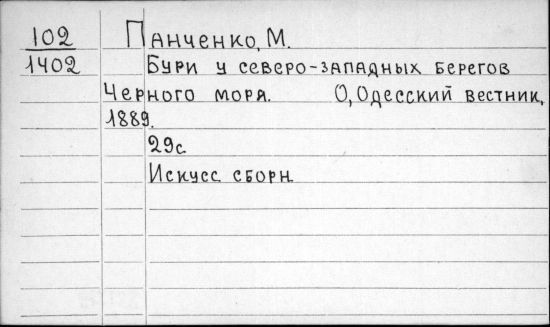 102 Панченко, М.
1402 Бури у северо-западных берегов
Черного моря. О, Одесский вестник,
1889.
29с.
Искусс. сборн.